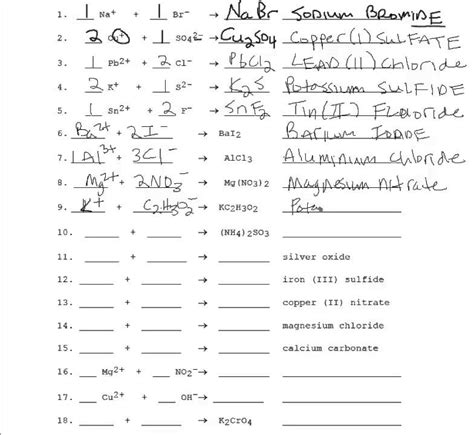 1. 1 Na+ + 1 Br- → NaBr SODIUM BROMIDE
2. 2 Cu+ + 1 SO4 2- → Cu2SO4 Copper(I) SulFATE
3. 1 Pb2+ + 2 Cl- → PbCl2 LEAD (II) Chloride
4. 2 K+ + 1 S2- → K2S Potassium SULFIDE
5. 1 Sn2+ + 2 F- → SnF2 Tin(II) Fluoride
6. Ba2+ + 2I- → BaI2 BARIUM IODIDE
7. 1Al3+ + 3Cl- → AlCl3 Aluminium chloride
8. Mg2+ + 2NO3- → Mg(NO3)2 Magnesium nitrate
9. K+ + C2H3O2- → KC2H3O2 Potas
10. ____ + ____ → (NH4)2SO3 ____
11. ____ + ____ → ____ silver oxide
12. ____ + ____ → ____ iron (III) sulfide
13. ____ + ____ → ____ copper (II) nitrate
14. ____ + ____ → ____ magnesium chloride
15. ____ + ____ → ____ calcium carbonate
16. __ Mg2+ + __ NO2- → ____ ____
17. __ Cu2+ + __ OH- → ____ ____
18. ____ + ____ → K2CrO4 ____